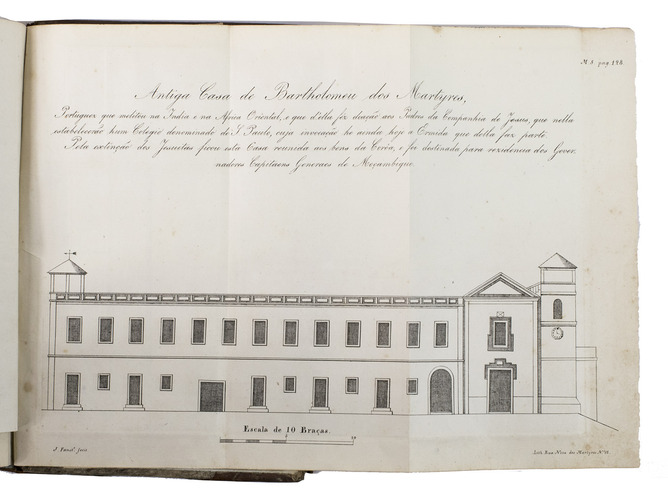 M. 5. pag. 128.
Antiga Casa de Bartholomeu dos Martyres,
Portuguez que militou na India e na Africa Oriental, e que d'ella fez doação aos Padres da Companhia de Jesus, que nella
estabelecerão hum Colegio denominado de S. Paulo, cuja invocação he ainda hoje a Ermida que della faz parte.
Pela extenção dos Jesuitas ficou esta Casa reunida aos bens da Corôa, e foi destinada para rezidencia dos Gover-
nadores Capitaens Generaes de Moçambique.
Escala de 10 Braças.
Lith. Rua Nova dos Martyres Nº